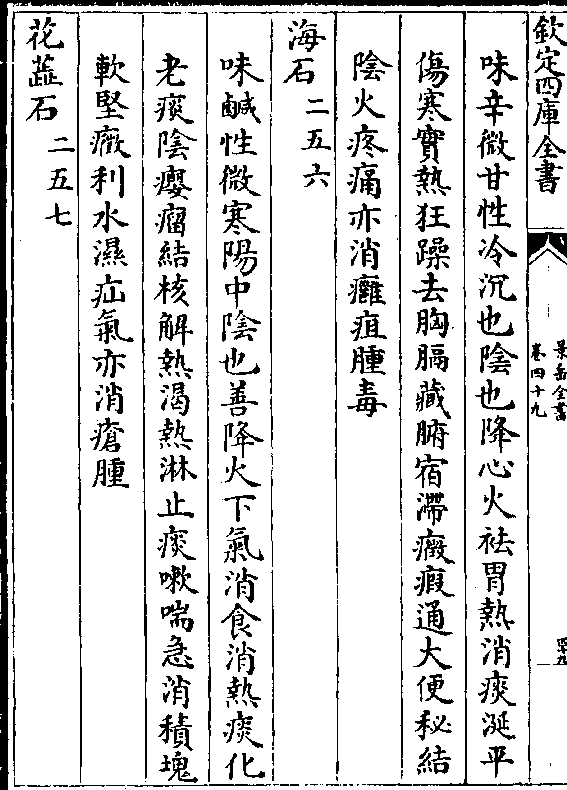 欽定四庫全書
景岳全書
卷四十九
味辛微甘性冷沉也陰也降心火袪胃熱消痰涎平
傷寒實熱狂躁去胸膈藏腑宿滯癥瘕通大便秘結
陰火疼痛亦消癰疽腫毒
海石二五六
味鹹性微寒陽中陰也善降火下氣消食消熱痰化
老痰陰癭瘤結核解熱渴熱淋止痰嗽喘急消積塊
軟堅癥利水濕疝氣亦消瘡腫
花蕋石二五七